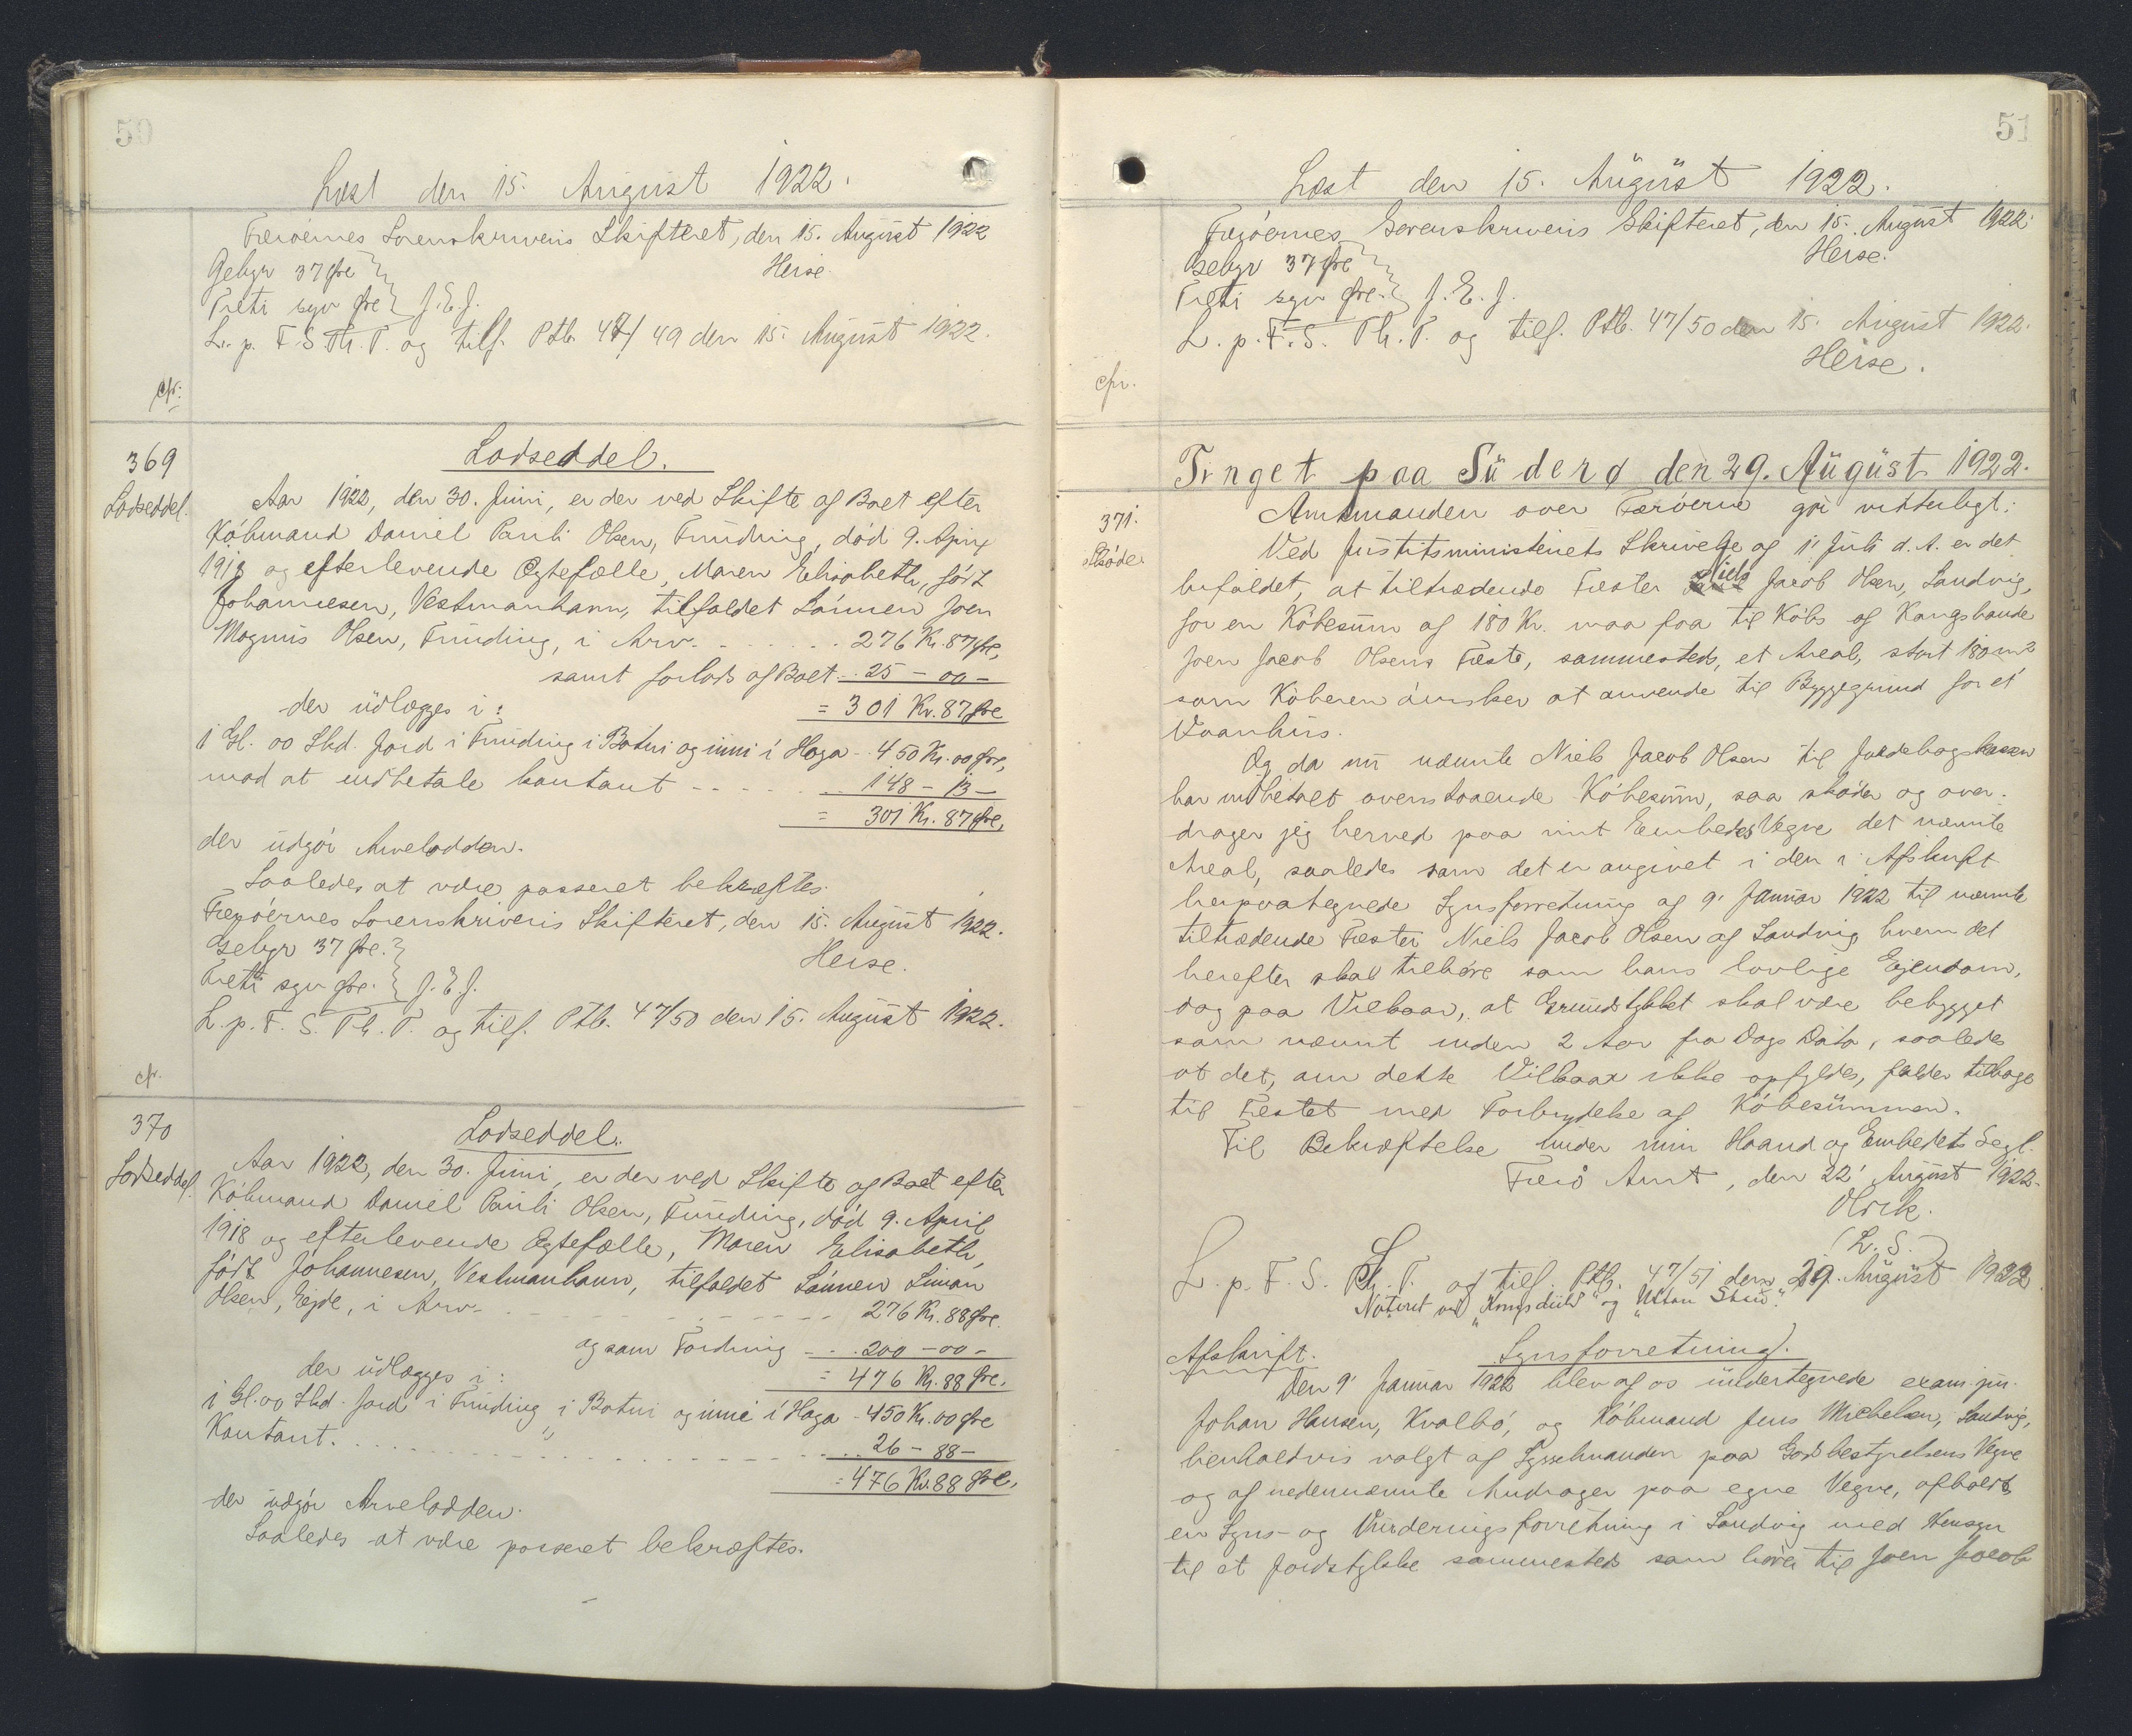 50
Læst den 15. August 1922.
Færøernes Sorenskriveris Skifteret, den 15. August 1922
Gebyr 37 Øre
Heise.
Treti syv Øre J.E.J.
L. p. F. S. Th. P. og tilf. Ptb. 47/49 den 15. August 1922.
cfr.
369
Lodseddel.
Lodseddel.
Aar 1922, den 30. Juni, er der ved Skifte af Boet efter
Köbmand Daniel Pauli Olsen, Funding, död 9. April
1918 og efterlevende Ægtefælle, Maren Elisabeth, född
Johannesen, Vestmanhavn, tilfaldet Sönnen Joen
Magnus Olsen, Funding, i Arv. 276 Kr. 87 Øre,
samt forlods af Boet 25 - 00 -
der udlægges i: = 301 Kr. 87 Øre
1 Gl. 00 Skd. Jord i Funding i Botni og inni í Haga 450 Kr. 00 Øre,
mod at indbetale kontant 148 - 13 -
= 301 Kr. 87 Øre,
der udgör Arvelodden.
Saaledes at være passeret bekræftes.
Færöernes Sorenskriveris Skifteret, den 15. August 1922.
Gebyr 37 Øre.
Heise.
Treti syv Øre. J.E.J.
L. p. F. S. Th. P. og tilf. Ptb. 47/50 den 15. August 1922.
cfr.
370
Lodseddel.
Lodseddel.
Aar 1922, den 30. Juni, er der ved Skifte af Boet efter
Köbmand Daniel Pauli Olsen, Funding, död 9. April
1918 og efterlevende Ægtefælle, Maren Elisabeth,
född Johannesen, Vestmanhavn, tilfaldet Sönnen Simon
Olsen, Ejde, i Arv. 276 Kr. 88 Øre.
og som Fordring 200 - 00 -
der udlægges i: = 476 Kr. 88 Øre.
1 Gl. 00 Skd. Jord i Funding i Botni og inni í Haga - 450 Kr. 00 Øre
Kontant. 26 - 88 -
= 476 Kr. 88 Øre.
der udgör Arvelodden.
Saaledes at være passeret bekræftes.
51
Læst den 15. August 1922.
Færöernes Sorenskriveris Skifteret, den 15. August 1922.
Gebyr 37 Øre
Heise.
Treti syv Øre. J.E.J.
L. p. F. S. Th. P. og tilf. Ptb. 47/50 den 15. August 1922.
Heise.
cfr.
Tinget paa Süderø den 29. August 1922.
371.
Sköde.
Amtmanden over Færöerne gör vitterligt:
Ved Justitsministeriets Skrivelse af 1' Juli d. A. er det
bifaldet, at tiltrædende Fæster Niels Jacob Olsen, Sandvig,
for en Köbesum af 180 Kr. maa faa til Köbs af Kongsbonde
Joen Jacob Olsens Fæste, sammesteds, et Areal, stort 180 m²
som Köberen önsker at anvende til Byggegrund for et
Vaanhus.
Og da nu nævnte Niels Jacob Olsen til Jordebogskassen
har indbetalt ovenstaaende Köbesum, saa sköder og over-
drager jeg herved paa mit Embeds Vegne det nævnte
Areal, saaledes som det er angivet i den i Afskrift
herpaategnede Synsforretning af 9' Januar 1922 til nævnte
tiltrædende Fæster Niels Jacob Olsen af Sandvig hvem det
herefter skal tilhöre som hans lovlige Ejendom,
dog paa Vilkaar, at Grundstykket skal være bebygget
som nævnt inden 2 Aar fra Dags Dato, saaledes
at det, om dette Vilkaar ikke opfyldes, falder tilbage
til Fæstet med Forbrydelse af Köbesummen.
Til Bekræftelse under min Haand og Embedets Segl.
Færö Amt, den 22' August 1922.
Olrik.
(L. S.)
L. p. F. S. Th. P. og tilf. Ptb. 47/51 den 29. August 1922
Noteret ved
Afskrift.
Synsforretning.
Den 9' Januar 1922 blev af os undertegnede exam. jur.
Johan Hansen, Kvalbö, og Köbmand Jens Michelsen, Sandvig,
henholdvis valgt af Sysselmanden paa Godsbestyrelsens Vegne
og af nedennævnte Andrager paa egne Vegne, afholdt
en Syns- og Vurderingsforretning i Sandvig med Hensyn
til et Jordstykke sammesteds som hörer til Joen Jacob